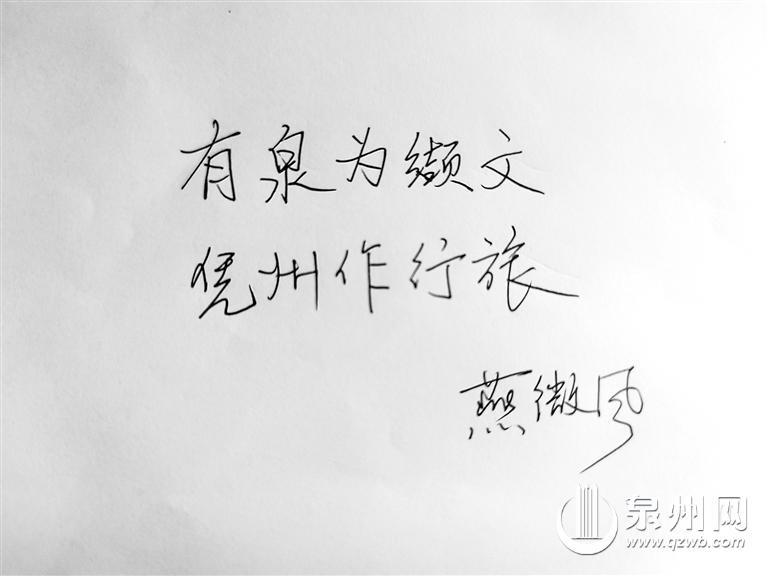 有泉为缬文
凭州作行旅
燕微风
泉州网
www.qzwb.com